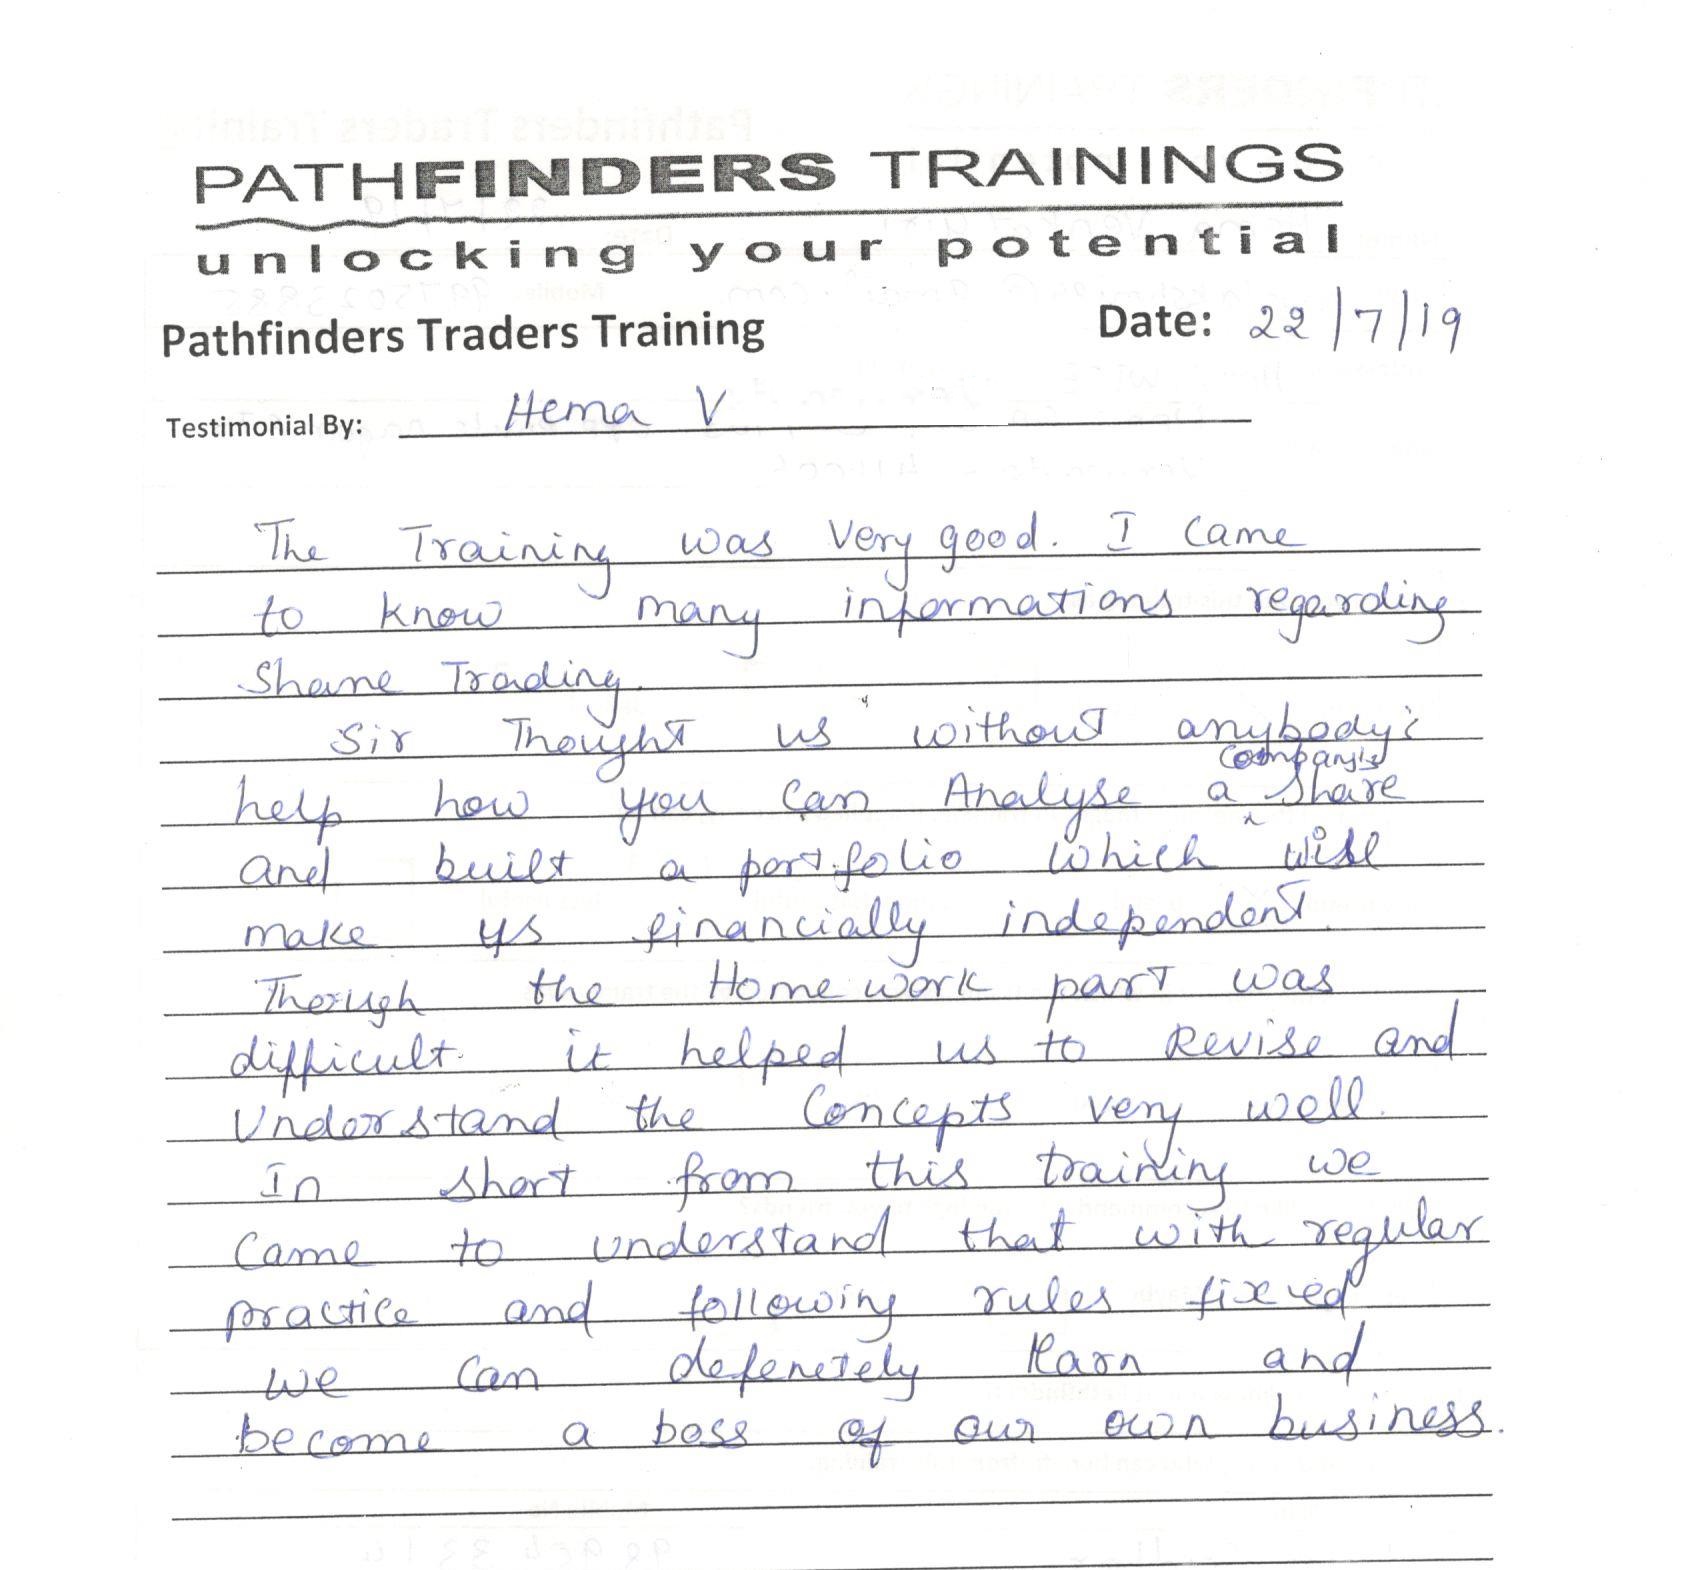 PATHFINDERS TRAININGS
unlocking your potential
Pathfinders Traders Training Date: 22/7/19
Testimonial By: Hema V
The Training was very good. I came
to know many informations regarding
Share Trading.
Sir Thought us without anybody's
help how you can Analyse a company's share
and built a portfolio which will
make us financially independent.
Though the Home work part was
difficult it helped us to Revise and
Understand the Concepts very well.
In short from this training we
came to understand that with regular
practice and following rules fixed
we can defenetely learn and
become a boss of our own business.